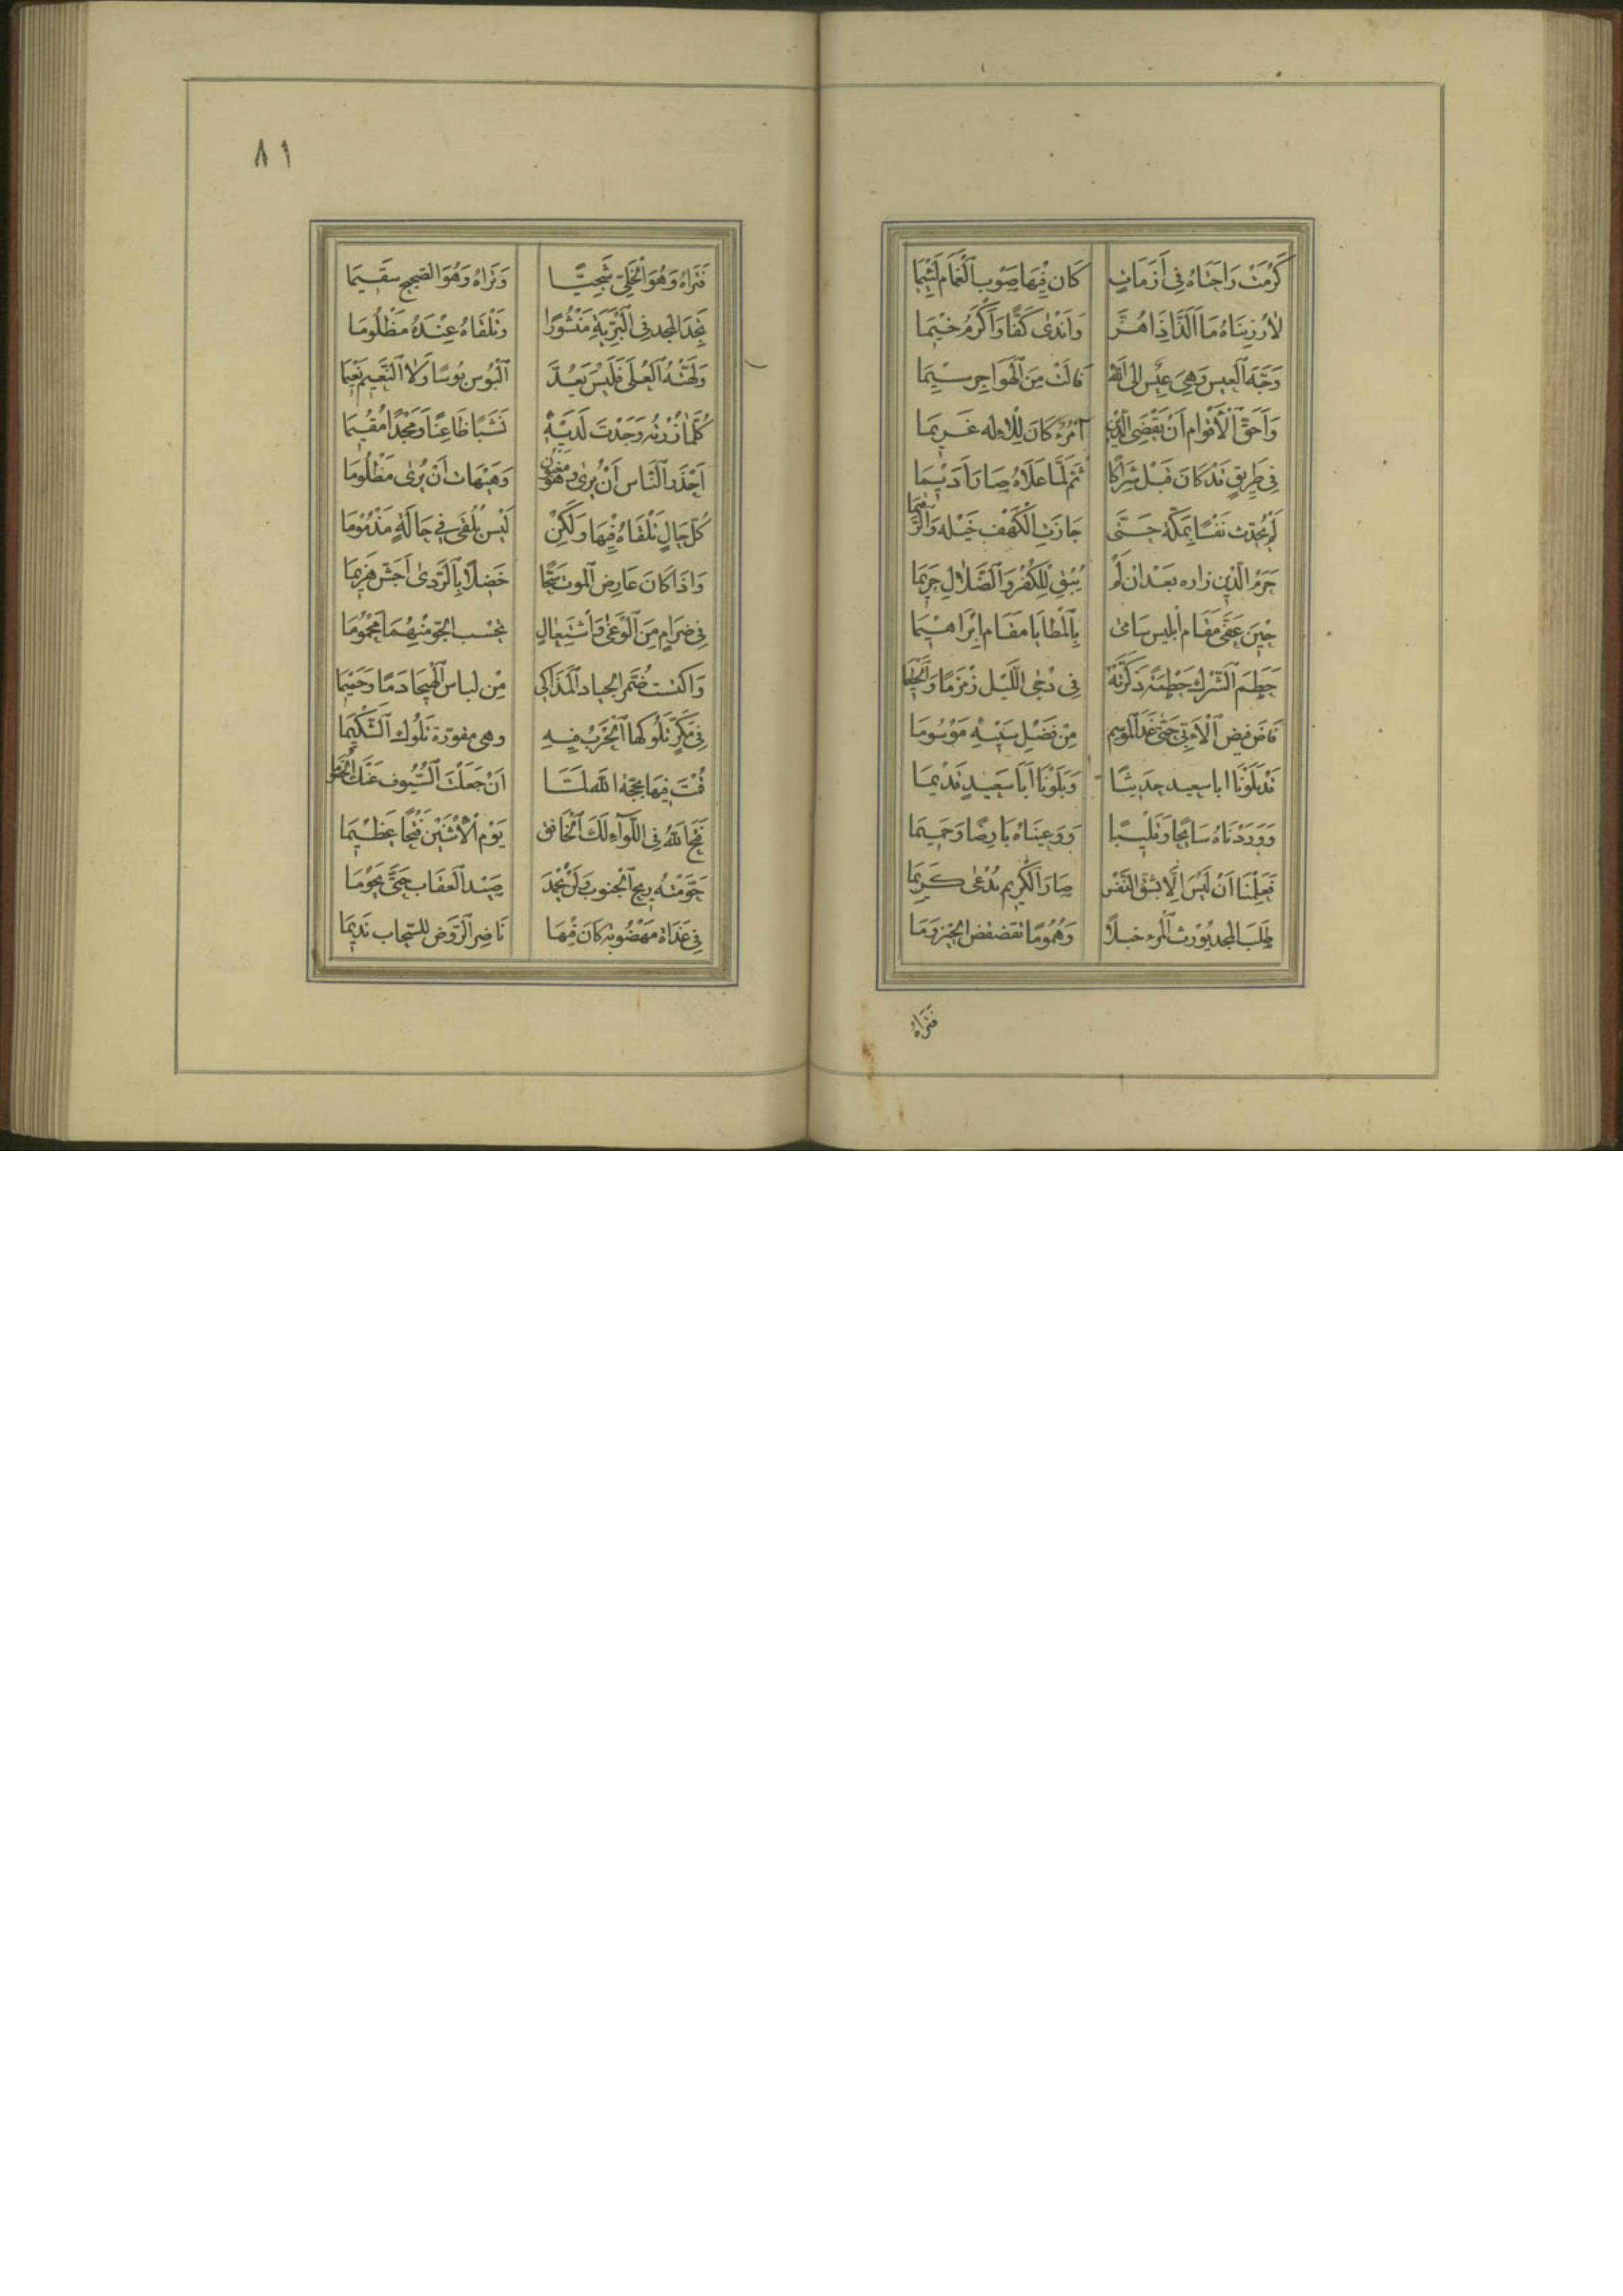 كَرُمَتْ رَاحَتَاهُ فِي أَزَمَاتٍ كَانَ فِيهَا صَوْبُ الْغَمَامِ لَئِيمَا
لَا رُزِينَاهُ مَا أَلَذَّ إِذَا هُزَّ وَأَنْدَى كَفًّا وَأَكْرَمُ خِيمَا
وَجَّهَ الْعِيسَ وَهِيَ عِيسٌ إِلَى اللّٰهِ فَآلَتْ مِنَ الْهَوَاجِرِ شِيمَا
وَأَحَقُّ الْأَقْوَامِ أَنْ يَقْضِيَ الدَّيْنَ امْرُؤٌ كَانَ لِلْإِلٰهِ غَرِيمَا
فِي طَرِيقٍ قَدْ كَانَ قَبْلُ شِرَاكًا ثُمَّ لَمَّا عَلَاهُ صَارَ أَدِيمَا
لَمْ يُحَدِّثْ نَفْسًا بِمَكَّةَ حَتَّى جَازَتِ الْكَهْفَ خَيْلُهُ وَالرَّقِيمَا
حَرَمُ الدِّينِ زَارَهُ بَعْدَ انْ لَمْ يُبْقِ لِلْكُفْرِ وَالضَّلَالِ حَرِيمَا
حِينَ عَفَّى مَقَامَ إِبْلِيسَ سَامَى بِالْمَطَايَا مَقَامَ إِبْرَاهِيمَا
حَطَّمَ الشِّرْكَ حَطْمَةً ذَكَّرَتْهُ فِي دُجَى اللَّيْلِ زَمْزَمًا وَالْحَطِيمَا
فَاضَ فَيْضَ الْأَتِيِّ حَتَّى غَدَا الْمَوْسِمُ مِنْ فَضْلِ سَيْبِهِ مَوْسُومَا
قَدْ بَلَوْنَا ابا سعيد حَدِيثًا وَبَلَوْنَا أَبَا سَعِيدٍ قَدِيمَا
وَوَرَدْنَاهُ سَائِحًا وَقَلِيبًا وَرَعَيْنَاهُ بَارِضًا وَجَمِيمَا
فَعَلِمْنَا أَنْ لَيْسَ إِلَّا بِشِقِّ النَّفْسِ صَارَ الْكَرِيمُ يُدْعَى كَرِيمَا
طَلَبُ الْمَجْدِ يُوْرِثُ الْمَرْءَ خَبْلًا وَهُمُومًا تقضقض الحيزومَا
فَتَرَاهُ
٨١
فَتَرَاهُ وَهُوَ الْخَلِيُّ شَجِيًّا وَتَرَاهُ وَهُوَ الصَّحِيحُ سَقِيمَا
تَجِدُ الْمَجْدَ فِي الْبَرِّيَةِ مَنْثُورًا وَتَلْقَاهُ عِنْدَهُ مَنْظُومَا
وَلَّهَتْهُ الْعُلَى فَلَيْسَ يَعُدُّ الْبُوسَ بُوسًا وَلَا النَّعِيمَ نَعِيمَا
كُلَّمَا زُرْتَهُ وَجَدْتَ لَدَيْهِ نَشَبًا ظَاعِنًا وَمَجْدًا مُقِيمَا
أَجْدَرُ النَّاسِ أَنْ يُرَى وَهُوَ مَغْبُونٌ وَهَيْهَاتَ أَنْ يُرَى مَظْلُومَا
كُلُّ حَالٍ تَلْقَاهُ فِيهَا وَلٰكِنْ لَيْسَ يُلْفَى فِي حَالَةٍ مَذْمُومَا
وَاذَا كَانَ عَارِضُ الْمَوْتِ سَحًّا خَضِلًا بِالرَّدَى أَجَشَّ هَزِيمَا
فِي ضِرَامٍ مِنَ الْوَغَى وَاشْتِعَالٍ تَحْسَبُ الْجَوَّ مِنْهُمَا مَحْمُومَا
وَاكْتَسَتْ ضُمَّرُ الْجِيَادِ الْمَذَاكِي مِنْ لِبَاسِ الْهَيْجَا دَمًا وَحَمِيمَا
فِي مَكَرٍّ تَلُوكُهَا الْحَرْبُ فِيهِ وهي مقورة تَلُوكُ الشَّكِيمَا
قُمْتَ فِيهَا بِحُجَّةِ اللّٰهِ لَمَّا أَنْ جَعَلْتَ السُّيُوفَ عَنْكَ الْخُصُومَا
فَتَحَ اللّٰهُ فِي اللِّوَآءِ لَكَ الْخَافِقِ يَوْمَ الْأِثْنَيْنِ فَتْحًا عَظِيمَا
حَوَّمَتْهُ رِيحُ الْجَنُوبِ وَلَنْ يُحْمَدَ صَيْدُ الْعُقَابِ حَتَّى يَحُوْمَا
فِي غَدَاةٍ مَهْضُوبَةٍ كَانَ فِيهَا نَاضِرُ الرَّوْضِ لِلسَّحَابِ نَدِيمَا